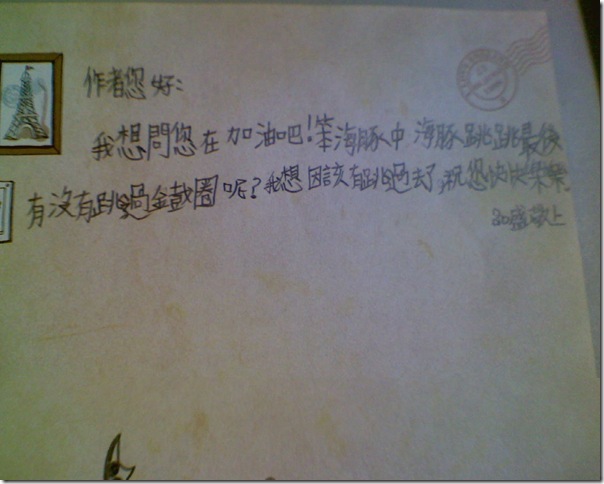 作者您好：
我想問您在加油吧！笨海豚中海豚跳跳最後
有沒有跳過金鼓圈呢？我想因該有跳過去了，祝您快快樂樂
敬上